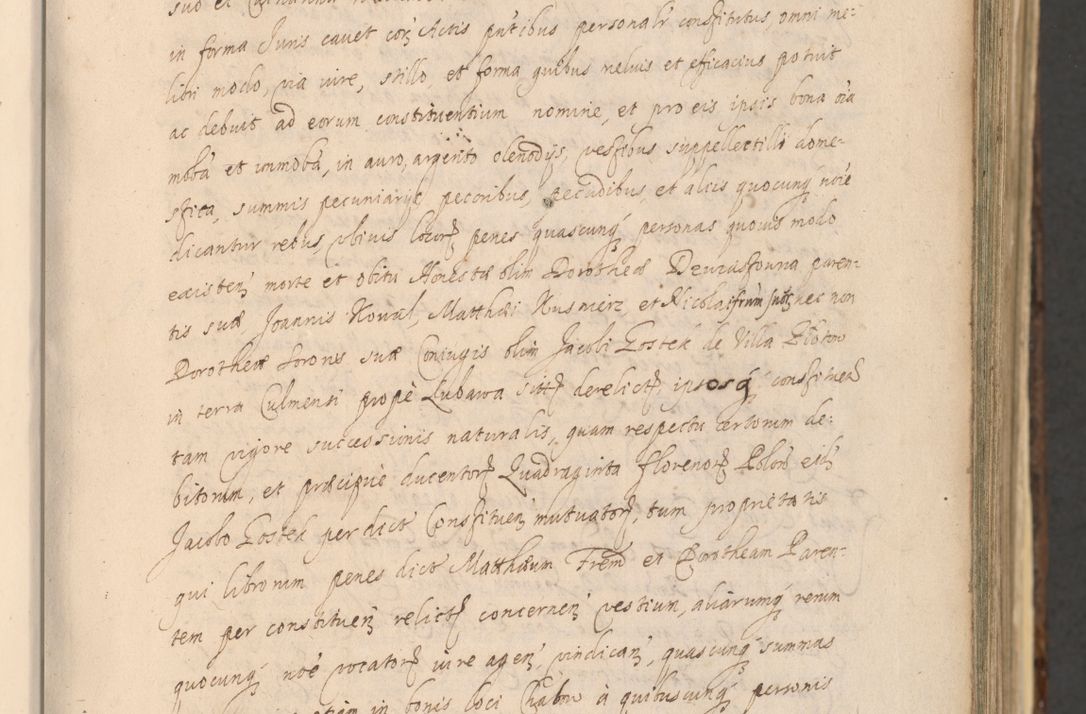 in forma Juris cavet corā Actis pntibus personalr constitutus, omni me-
liori modo, via iure, stillo, et forma quibus melius et efficacius potuit
ac debuit ad eorum constituentium nomine, et pro eis ipsis bona oīa
mobā et immobā, in auro, argento clenodijs, vestibus suppellectili dome-
stica, summis pecuniarijs pecoribus, pecudibus, et alijs quocunq noīe
dicantur rebus, ubivis locorū penes quascunq personas quovis modo
existen morte et obitu Honestæ olim Dorotheæ paren-
tis suæ, Joannis Nowal, Matthæi Kusnierz, et Nicolai frūm suorū nec non
Dorotheæ Sororis suæ Coniugis olim Jacobi Gostek de Villa Plotow
in terra Culmensi propè Lubawa sittæ derelictæ, ipsosq constituen
tam vigore successionis naturalis, quam respectu certorum de-
bitorum, et præcipuè ducentorū Quadraginta florenorū Polon eidē
Jacobo Gostek per dict Constituen mutuatorū, tum proprietatis
qui librorum penes dict Matthæum Frem et Dorotheam Paren-
tem per constituen relictæ concernen vestium, aliarumq rerum
quocunq noē vocatorū iure agen, vindican, quascunq summas
in bonis loci Chabow à quibuscunq personis